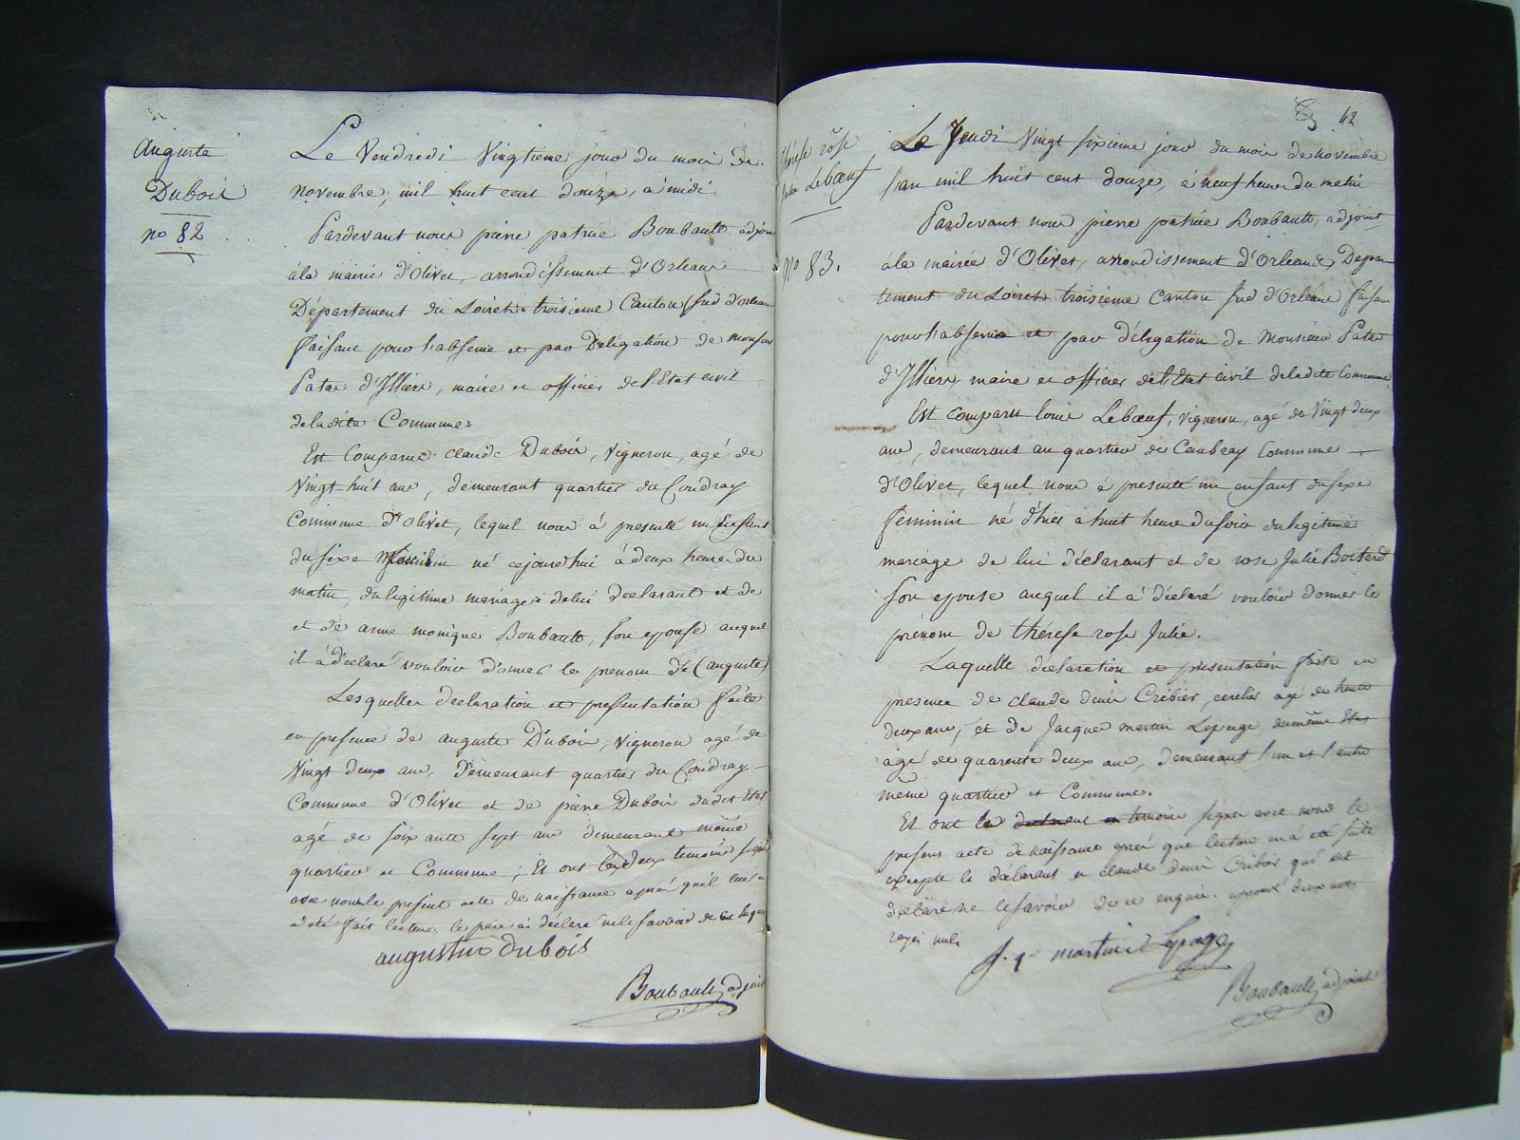 Auguste
Dubois
no 82
Le Vendredi Vingtieme jour du mois de
novembre, mil huit cent douze, a midi
Pardevant nous pierre patrice Boubault adjoint
à la mairie d'Olivet, arrondissement d'Orleans
Département du Loiret troisieme Canton sud d'orleans
faisant pour l'absence et par Délégation de monsieur
Patas d'Illiers, maire et officier de l'Etat civil
de la dite Commune
Est Comparu claude Dubois, Vigneron, agé de
Vingt huit ans, demeurant quartier du Coudray
Commune d'Olivet, lequel nous à presenté un Enfant
du sexe né cejourd'hui à deux heures du
matin, du legitime mariage de lui declarant et de
et de anne monique Boubault, son epouse auquel
il à déclaré vouloir donner le prenom de (auguste)
Lesquelles declaration et presentation faite
en presence de auguste Dubois, Vigneron agé de
Vingt deux ans, Demeurant quartier du Coudray
Commune d'Olivet et de pierre Dubois dudit Etat
agé de soixante sept ans demeurant même
quartier et Commune; Et ont les deux temoins signé
avec nous le present acte de naissance après qu'il leur
a eté fait lecture, le pere a déclaré ne le savoir de ce
augustin dubois
Boubault adjoint
62
rose
Lebœuf
No 83.
Le Jeudi Vingt sixieme jour du mois de novembre
l'an mil huit cent douze, à neuf heures du matin
Pardevant nous pierre patrice Boubault, adjoint
à la mairie d'Olivet, arrondissement d'Orleans, Depar
tement du Loiret troisieme Canton sud d'Orleans faisant
pour l'absence et par délégation de Monsieur Patas
d'Illiers, maire et officier de l'Etat civil de la dite Commune
Est Comparu louis Lebœuf, Vigneron, agé de Vingt deux
ans, demeurant au quartier de Commune
d'Olivet, lequel nous à presenté un enfant du sexe
féminin né d'hier à huit heures du soir du legitime
mariage de lui déclarant et de rose Julie
son epouse auquel il à déclaré vouloir donner le
prénom de thérese rose Julie.
Laquelle déclaration et presentation faite en
presence de claude denis Cribier, agé de
deux ans, et de Jacques martin Lepage du même Etat
agé de quarante deux ans, demeurant l'un et l'autre
même quartier et Commune.
Et ont le temoin signé avec nous le
present acte de naissance après que lecture en a été faite
excepté le déclarant et claude denis Cribier qui ont
déclaré ne le savoir de ce enquis.
rayés nuls
martin Lepage
Boubault adjoint